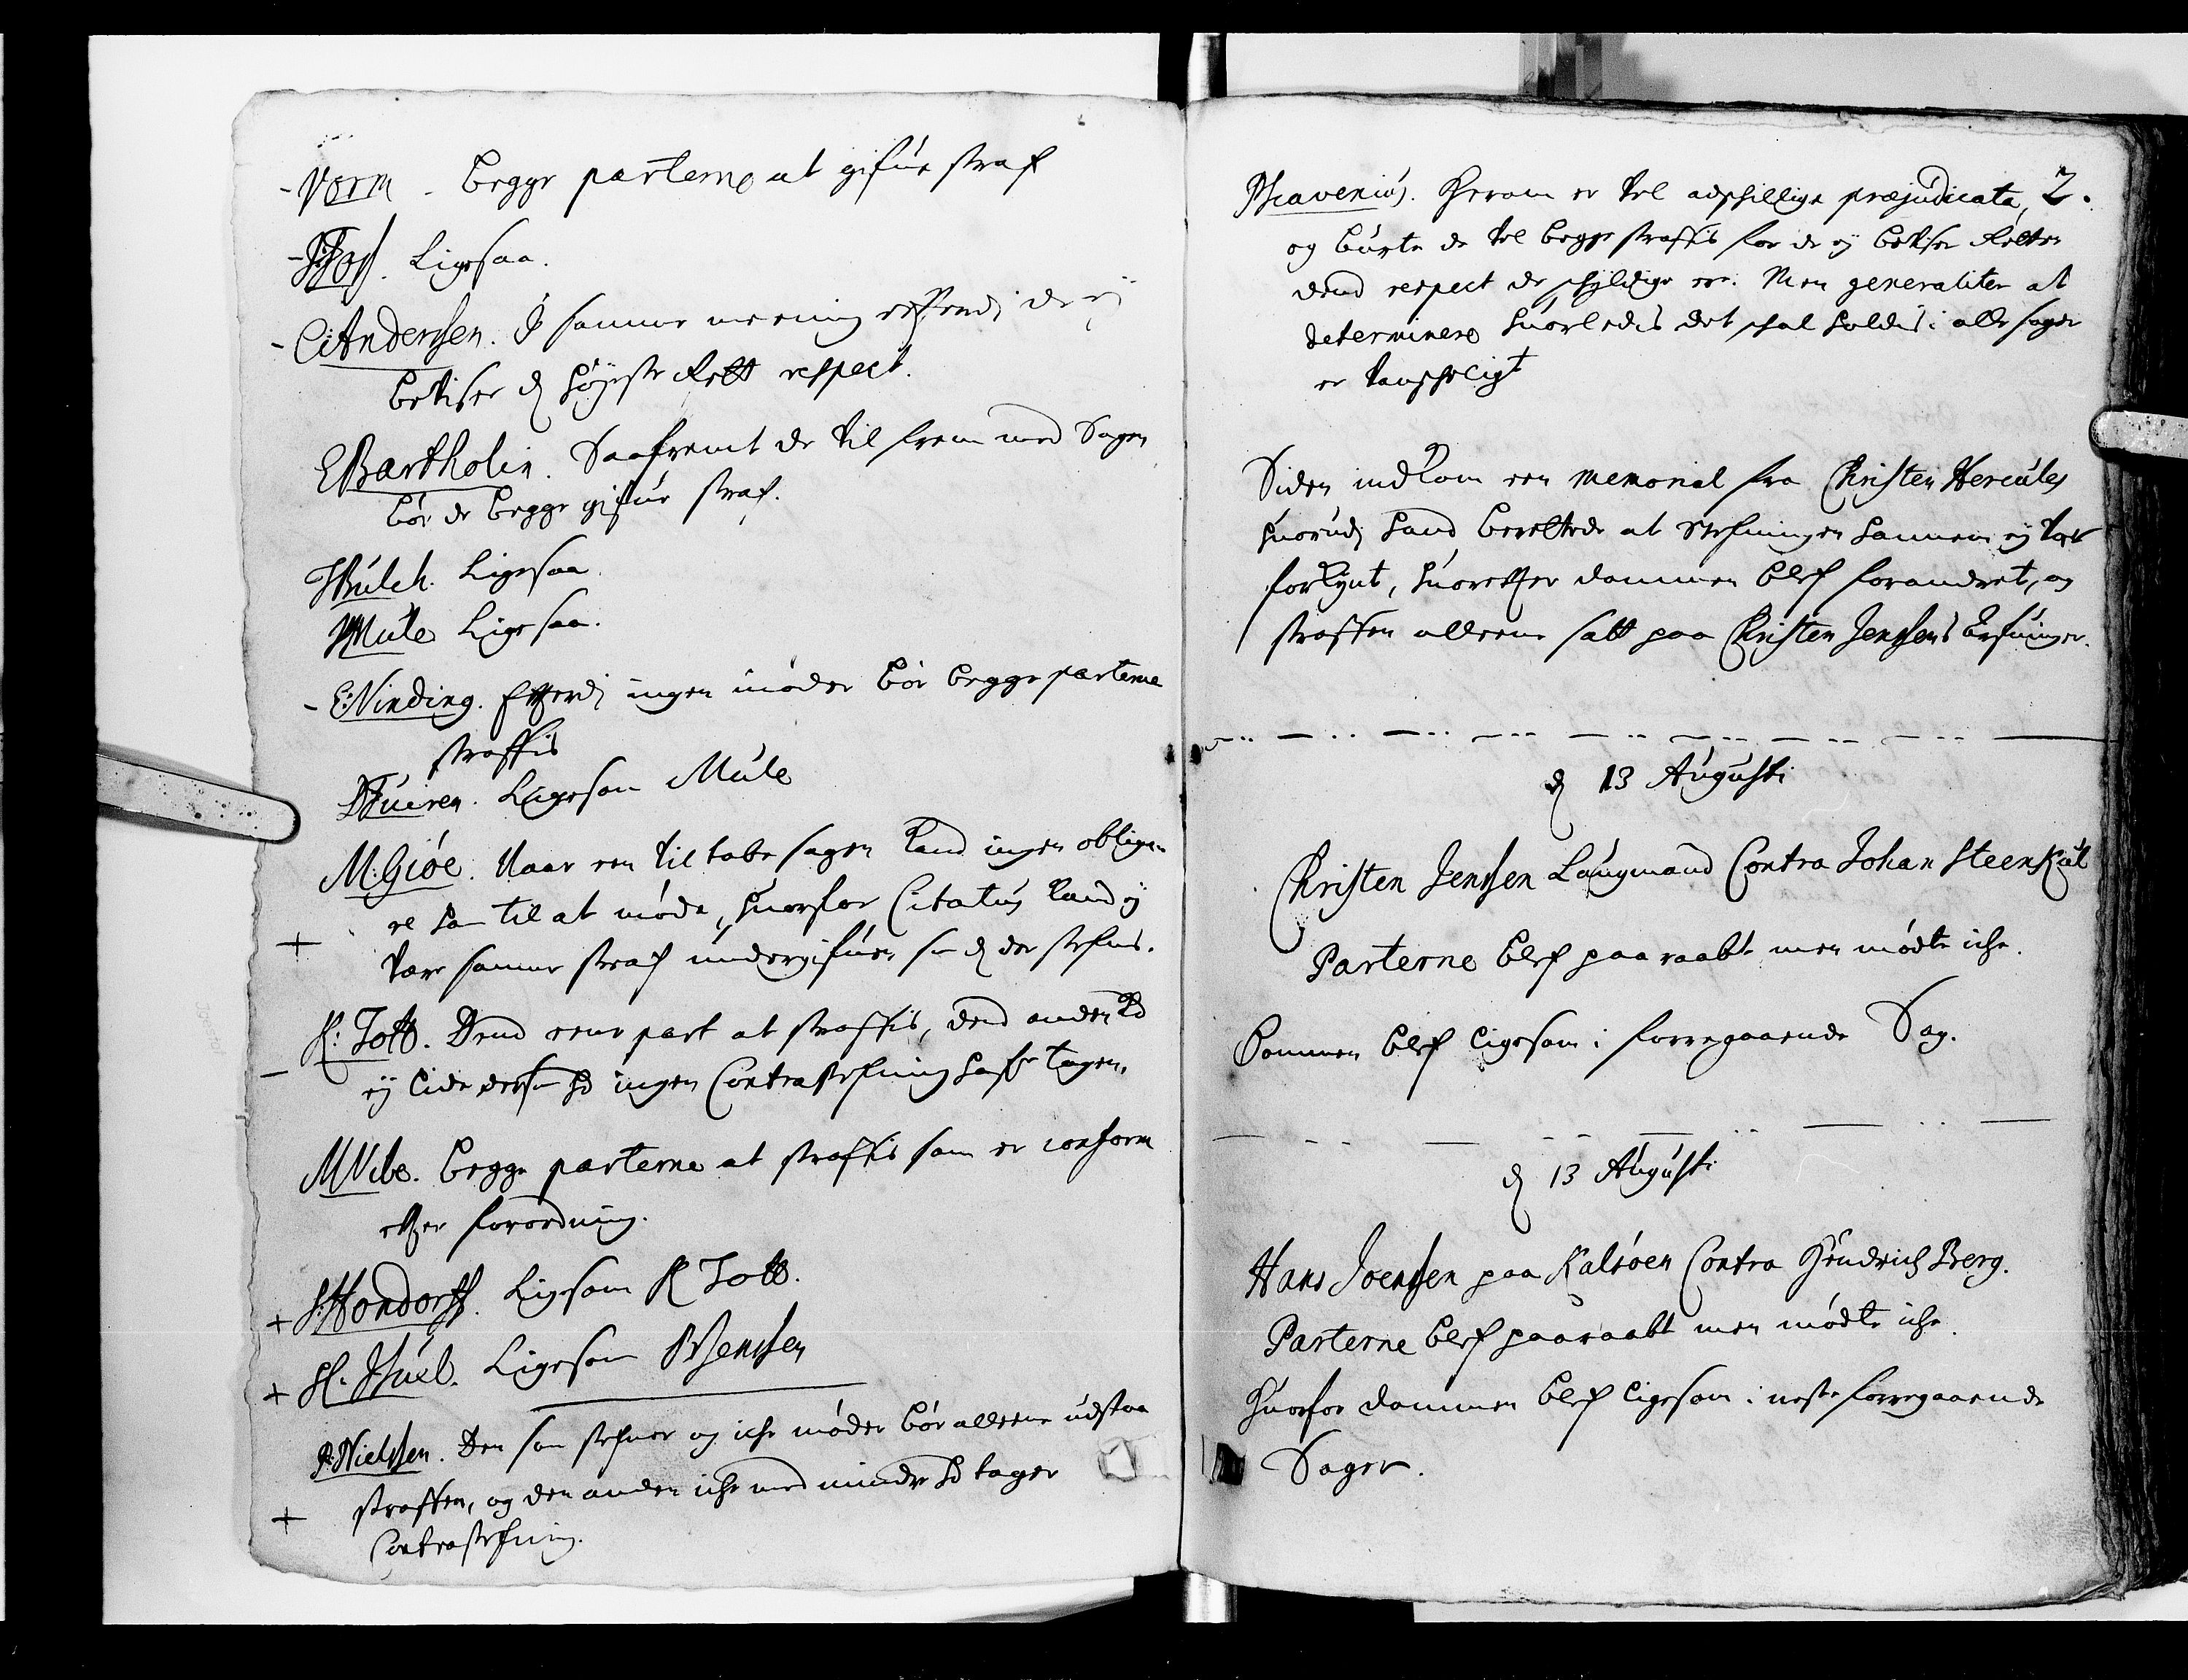 - Worm - begge parterne at gifue straf
- Foss. Ligesaa.
- C: Anderssen. I samme meening effterdi de ej
beviser d: Høyeste Rett respect.
E Bartholin. Saafremt de vil frem med Sagen
bør de begge gifue straf.
Bülch. Ligesaa.
Mule Ligesaa.
- E: Vinding. Efterdj ingen møder bør begge parterne
straffis
D Fuiren. Ligesom Mule
M: Giøe. Naar een vil tabe sagen kand ingen oblige-
re ham til at møde, huorfor Citatus kand ej
+ være samme straf undergifuen som d: der stefns.
- K: Tott. Dend eene part at straffis, dend anden kd
ej lide dersom hd ingen Contrastefning hafr tagen.
M Vibe. begge parterne at straffis som er conform
effter forordning.
+ H: Hondorff. Ligesom K Tott.
+ H: Juel. Ligesom Jenssen
P: Nielssen. Den som stefner og iche møder bør alleene udstaa
+ straffen, og den anden iche med mindre hd tager
Contrastefning.
2.
P Scavenius. Herom er vel adschillige præjudicata,
og burte de vel begge straffis for de ej beviser Retten
dend respect de schyldige ere. Men generaliter at
determinere huorledis det schal holdis i alle sager
er vanscheligt
Siden indkom een memorial fra Christen Hercules
huorudj hand berettede at stefningen hannem ej var
forkynt, huoreffter dommen blef forandret, og
straffen alleene satt paa Christen Jenssens Arfuinger.
d 13 Augusti
Christen Jenssen Laugmand Contra Johan Steenkul
Parterne blef paaraabt men mødte iche.
Dommen blef ligesom i forregaaende Sag.
d 13 Augusti
Hans Joenssen paa Kalsøen Contra Hendrich Berg.
Parterne blef paaraabt men mødte iche.
Huorfor dommen blef ligesom i neste forregaaende
Sager.